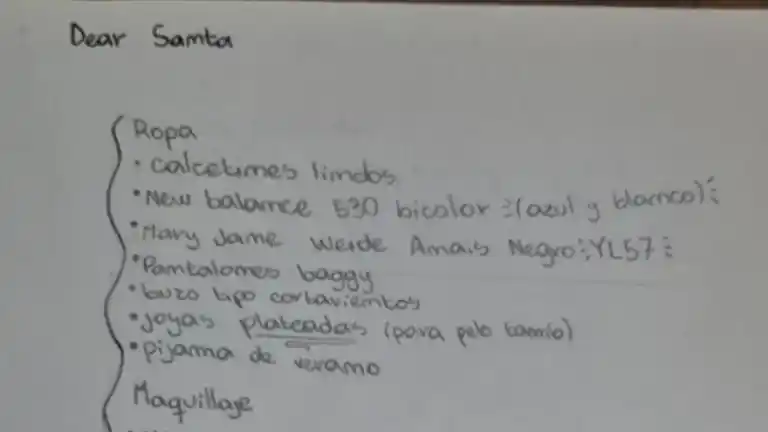 Dear Santa
Ropa
• calcetines lindos
• New balance 530 bicolor :(azul y blanco):
• Mary Jane Weide Amais Negro :YL57:
• Pantalones baggy
• buzo tipo cortavientos
• joyas plateadas (para pelo tamio)
• pijama de verano
Maquillaje